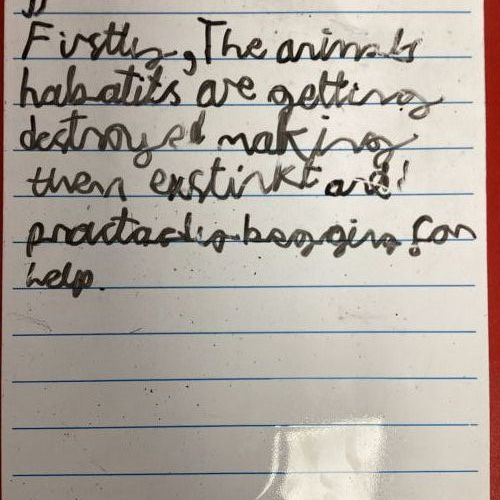 Firstly, The animals
habatits are getting
destroyed making
them exstinkt and
practacly begging for
help.